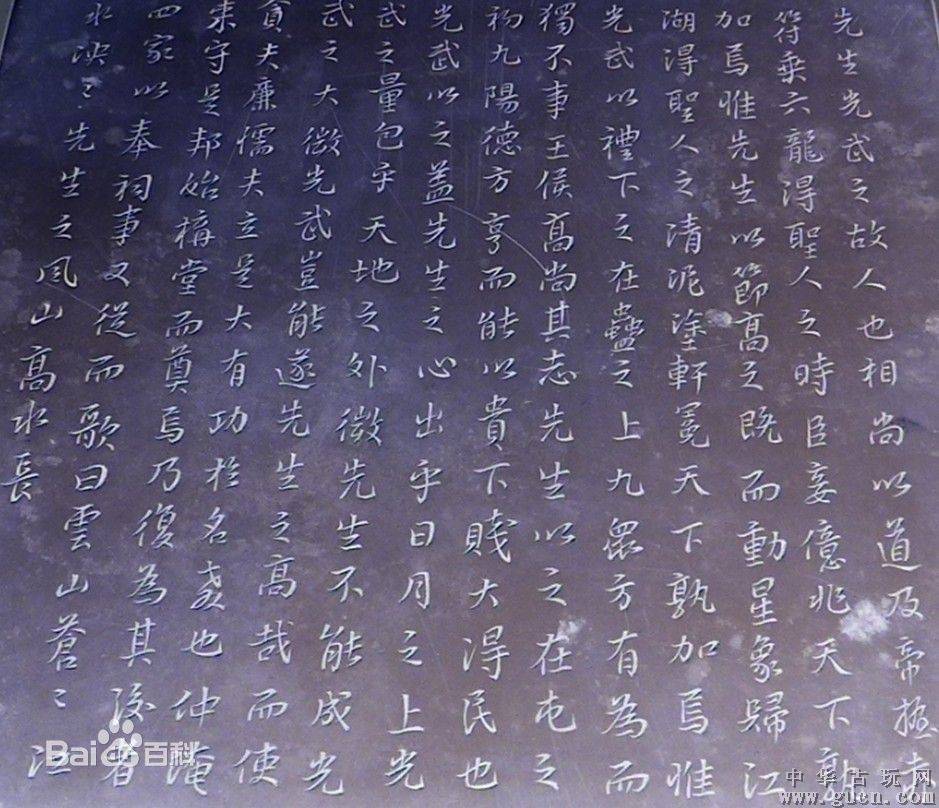 先生光武之故人也相尚以道及帝握赤
符乗六龍得聖人之時臣妾億兆天下孰
加焉惟先生以節高之既而動星象歸江
湖得聖人之清泥塗軒冕天下孰加焉惟
光武以禮下之在蠱之上九眾方有為而
獨不事王侯高尚其志先生以之在屯之
初九陽德方亨而能以貴下賤大得民也
光武以之蓋先生之心出乎日月之上光
武之量包乎天地之外微先生不能成光
武之大微光武豈能遂先生之高哉而使
貪夫廉懦夫立是大有功於名教也仲淹
来守是邦始構堂而奠焉乃復為其後者
四家以奉祠事又從而歌曰雲山蒼〻江
水泱〻先生之風山高水長
Bai百科
中华古玩网
www.gucn.com